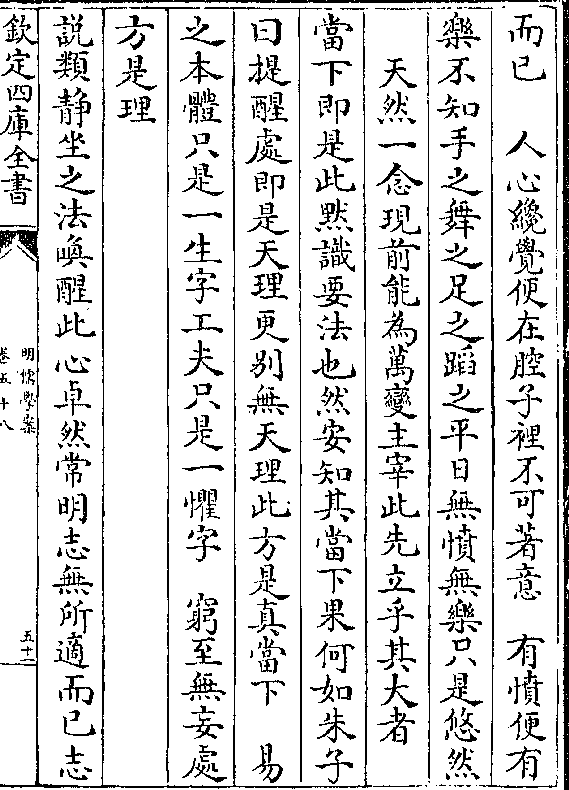 而已　人心纔覺便在腔子裡不可著意　有憤便有
樂不知手之舞之足之蹈之平日無憤無樂只是悠然
天然一念現前能為萬變主宰此先立乎其大者
當下即是此默識要法也然安知其當下果何如朱子
曰提醒處即是天理更別無天理此方是真當下　易
之本體只是一生字工夫只是一懼字　窮至無妄處
方是理
説類静坐之法喚醒此心卓然常明志無所適而已志
欽定四庫全書
明儒學案
卷五十八
五十二